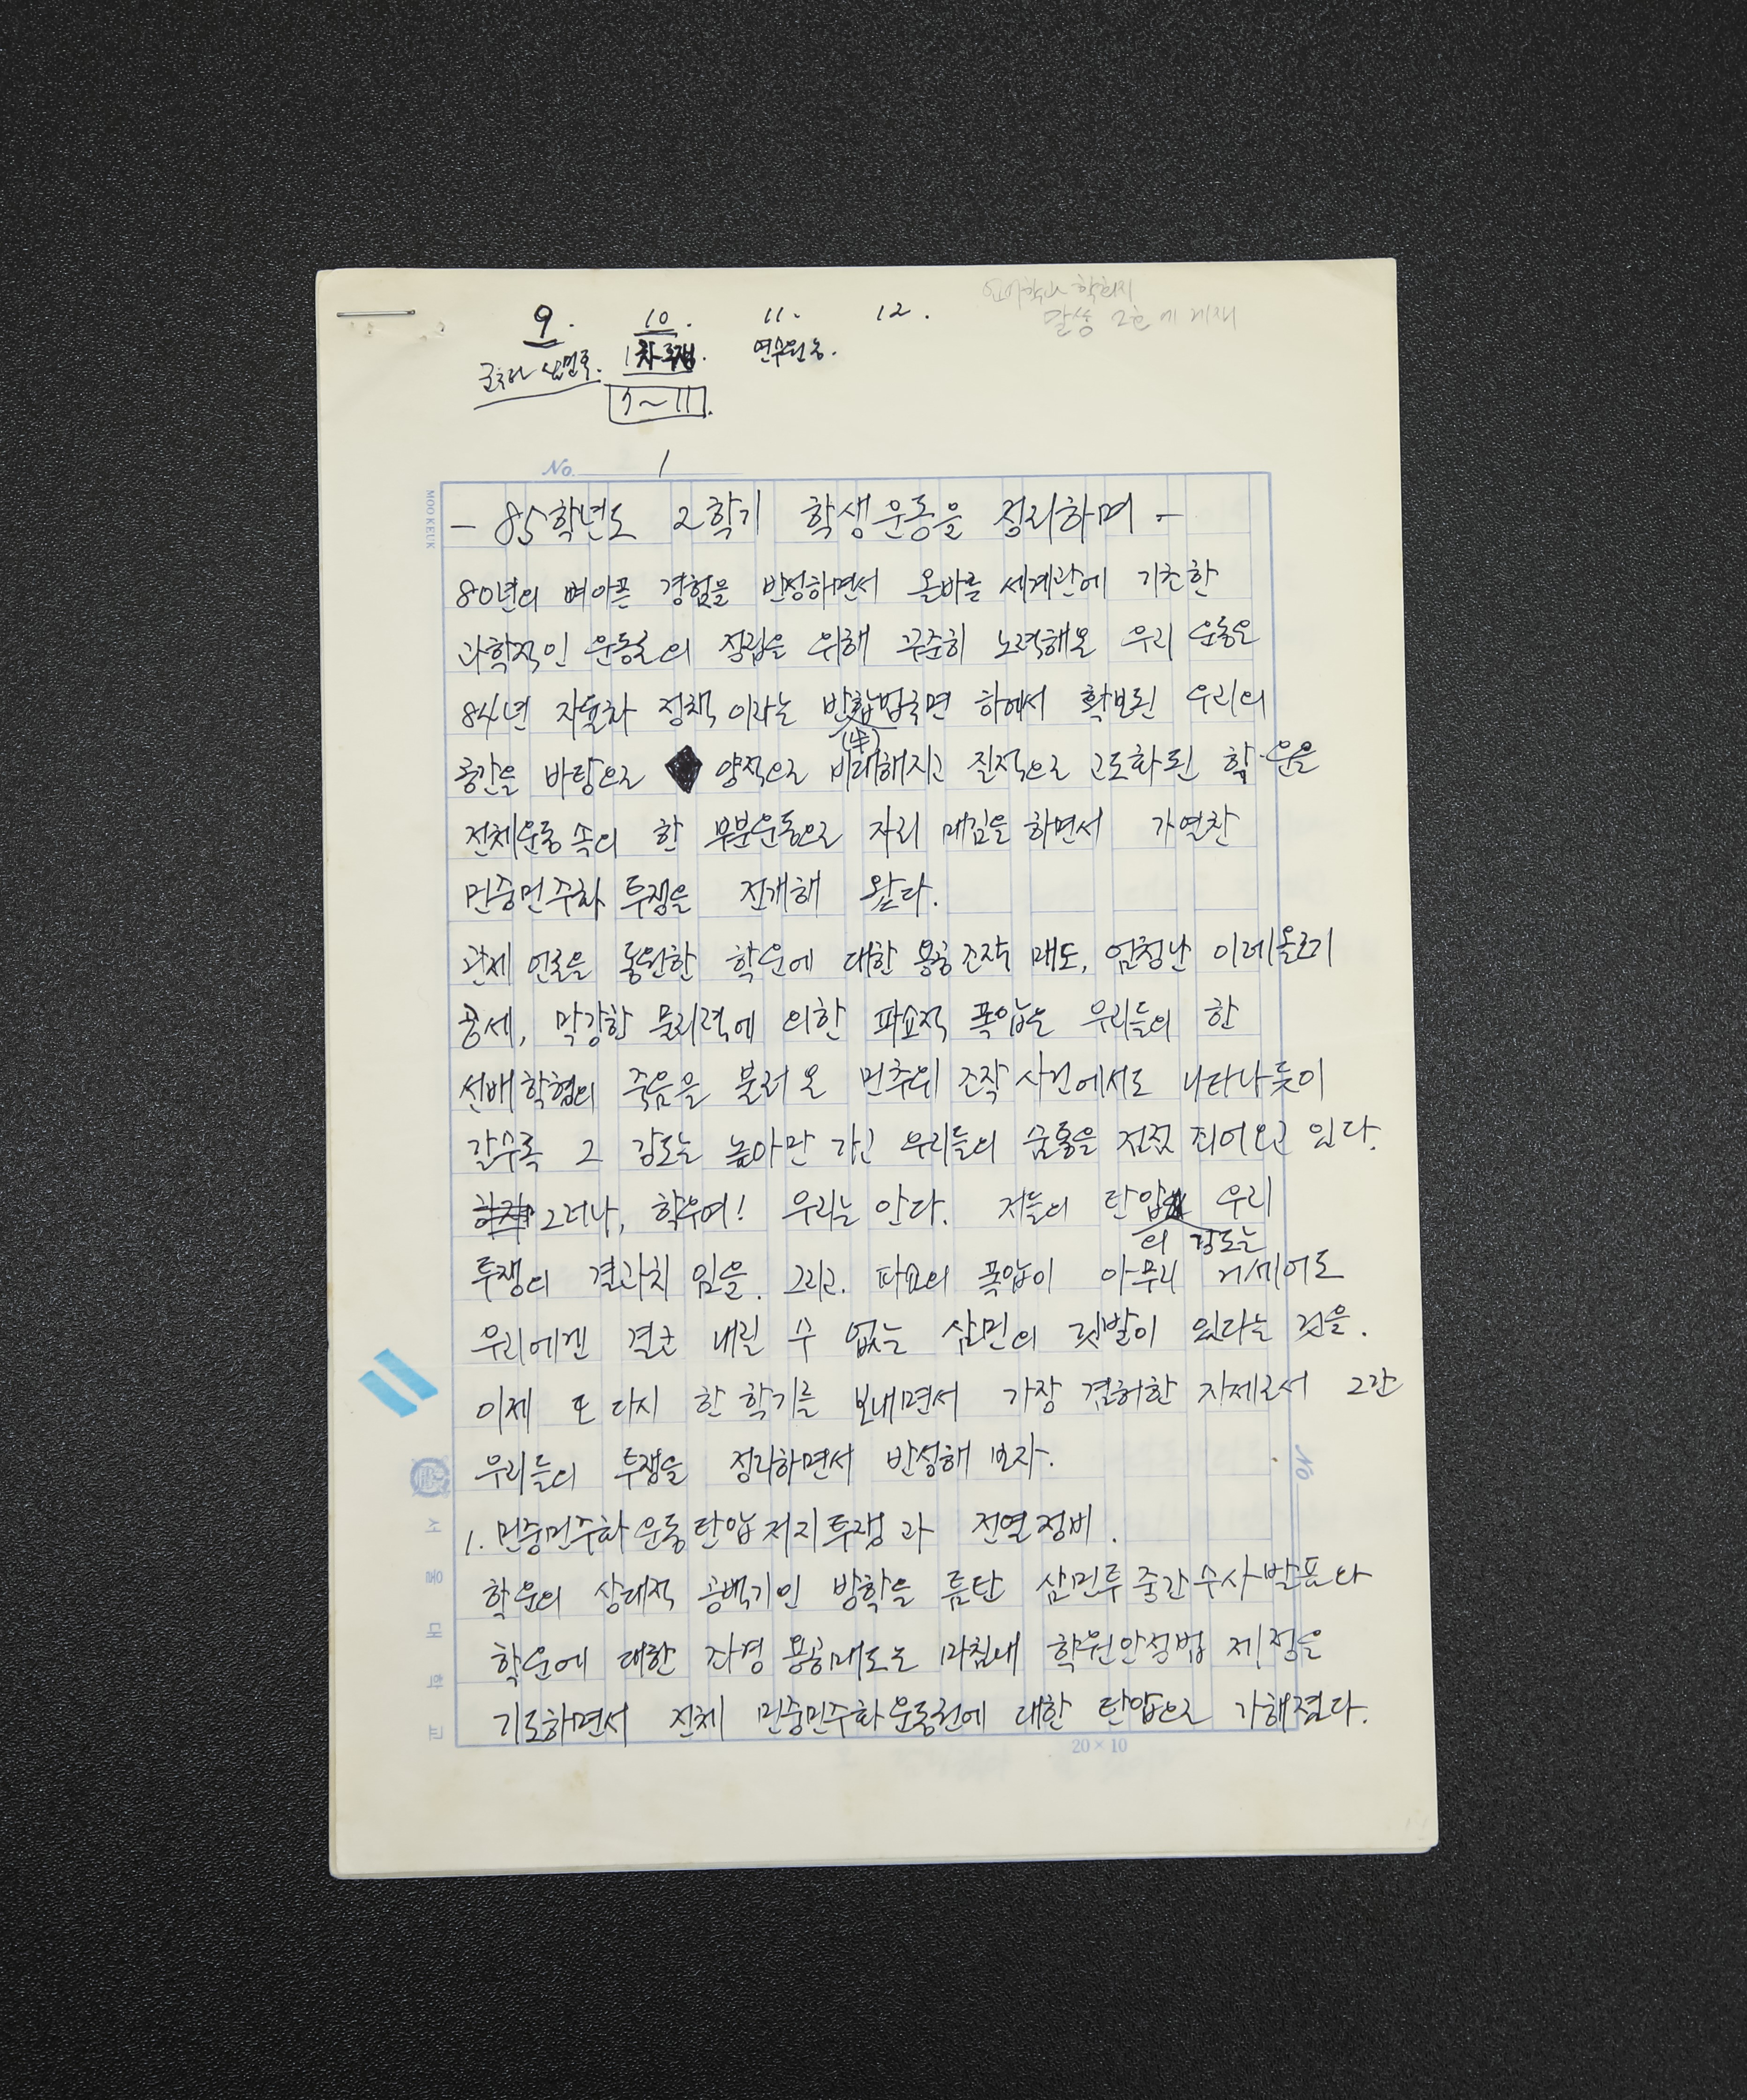 9. 10. 11. 12.
연수원농.
5~11.
No. 1
MOOKEUK
- 85학년도 2학기 학생운동을 정리하며 -
80년의 뼈아픈 경험을 반성하면서 올바른 세계관에 기초한
과학적인 운동론의 정립을 위해 꾸준히 노력해온 우리 운동은
84년 자율화 정책 이라는 반합법국면 하에서 확보된 우리의
(半)
공간을 바탕으로 양적으로 비대해지고 질적으로 고도화된 학운을
전체운동 속의 한 부분운동으로 자리 매김을 하면서 가열찬
민중민주화 투쟁을 전개해 왔다.
관제 언론을 동원한 학운에 대한 용공조작 매도, 엄청난 이데올로기
공세, 막강한 물리력에 의한 파쇼적 폭압은 우리들의 한
선배 학형의 죽음을 불러 온 민추위 조작 사건에서도 나타나듯이
갈수록 그 강도는 높아만 가고 우리들의 숨통을 점점 죄어오고 있다.
그러나, 학우여! 우리는 안다. 저들의 탄압 우리
의 강도는
투쟁의 결과치 임을. 그리고. 파쇼의 폭압이 아무리 거세어도
우리에겐 결코 내릴 수 없는 삼민의 깃발이 있다는 것을.
이제 또 다시 한 학기를 보내면서 가장 겸허한 자세로서 그간
우리들의 투쟁을 정리하면서 반성해 보자.
1. 민중민주화 운동 탄압 저지 투쟁 과 전열 정비.
학운의 상대적 공백기인 방학을 틈탄 삼민투 중간수사발표와
학운에 대한 좌경 용공매도는 마침내 학원안정법 제정을
기도하면서 전체 민중민주화운동권에 대한 탄압으로 가해졌다.
서울대학교
No
20×10